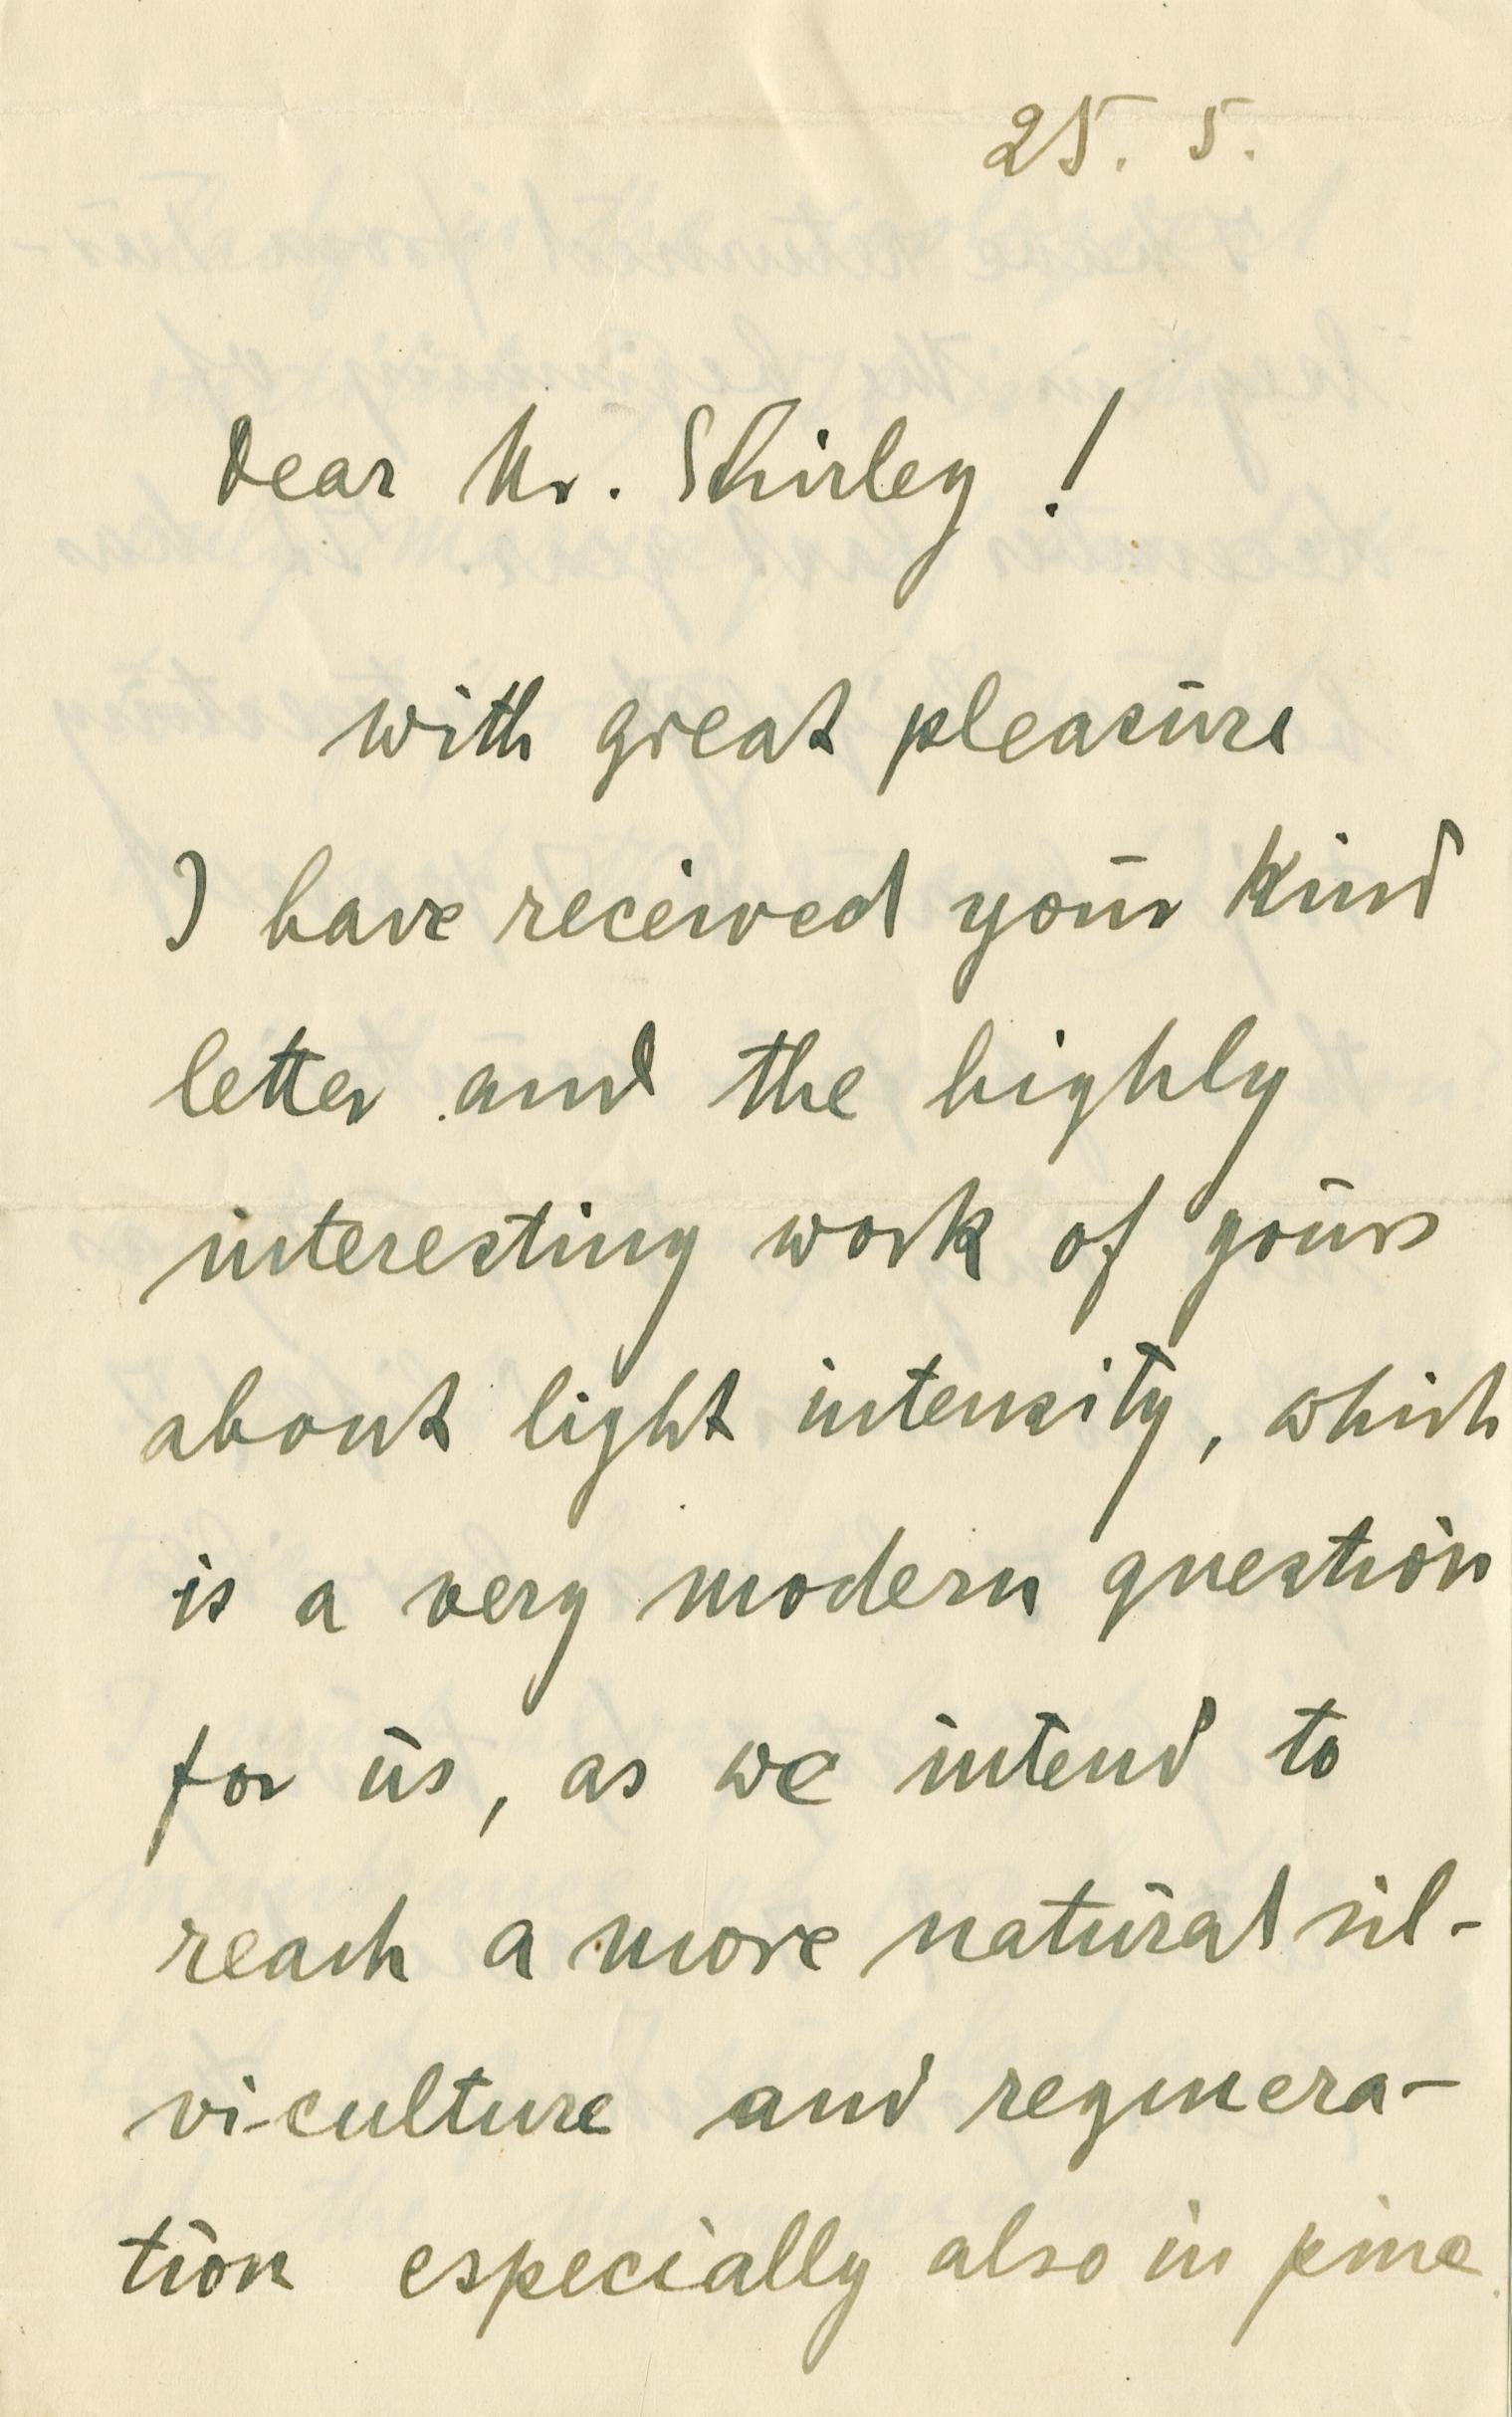 25. 5.
Dear Mr. Shirley!
with great pleasure
I have received your kind
letter and the highly
interesting work of yours
about light intensity, which
is a very modern question
for us, as we intend to
reach a more natural sil-
viculture and regenera-
tion especially also in pine